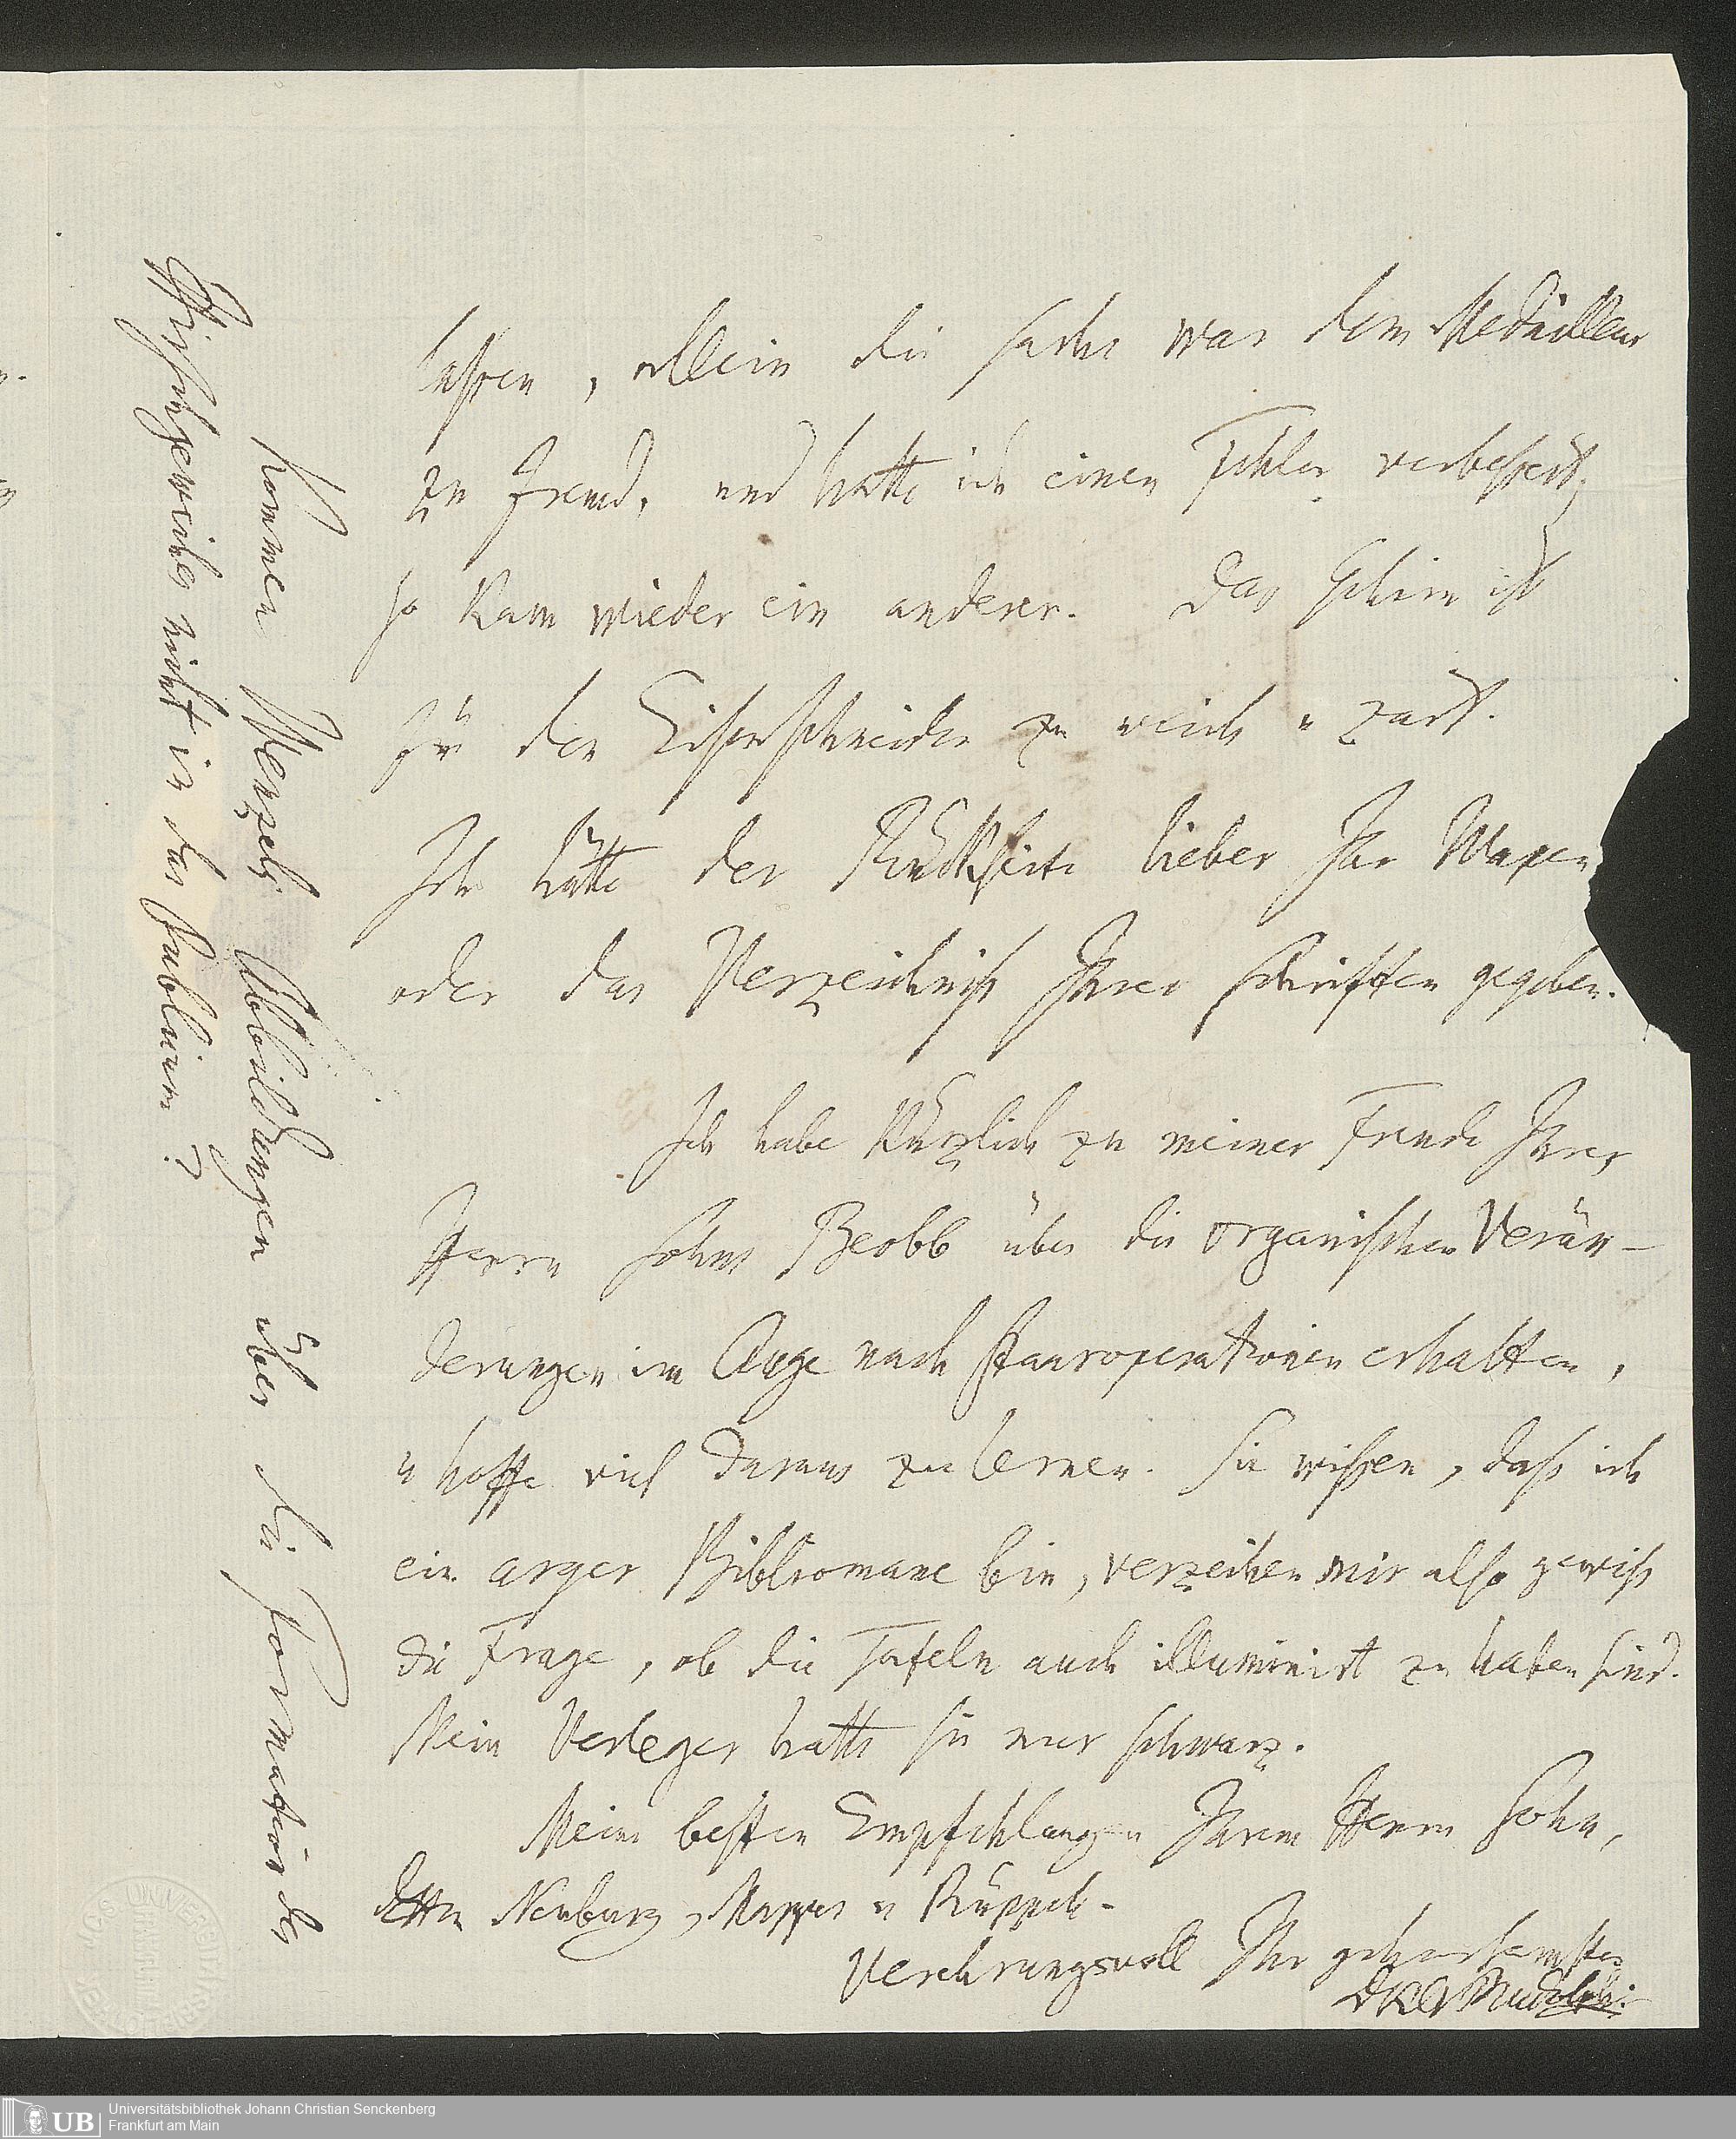 laßen, allein die Sache war dem Medailleur
zu fremd, und hatte ich einen Fehler verbeßert,
so kam wieder ein anderer. Das Gehirn ist
für den Eisenschneider zu weich u zart.
Ich hätte der Rückseite lieber Ihr Wapen
oder das Verzeichniß Ihrer Schriften gegeben.
Ich habe kürzlich zu meiner Freude Ihres
Herrn Sohns Beobb über die organischen Verän-
derungen im Auge nach Staaroperationen erhalten,
u hoffe viel daraus zu lernen. Sie wißen, daß ich
ein arger Bibliomane bin, verzeihen mir also gewiß
die Frage, ob die Tafeln auch illuminirt zu haben sind.
Mein Verleger hatte sie nur schwarz.
Meine besten Empfehlungen Ihrem Herrn Sohn,
Neuburg, Mappes u Rüppell.
Verehrungsvoll Ihr gehorsamster
DKARudolphi.
Kommen Wenzels Abbildungen über die Formation des
Hirschgeweihes nicht in das Publicum?
UB Universitätsbibliothek Johann Christian Senckenberg
Frankfurt am Main